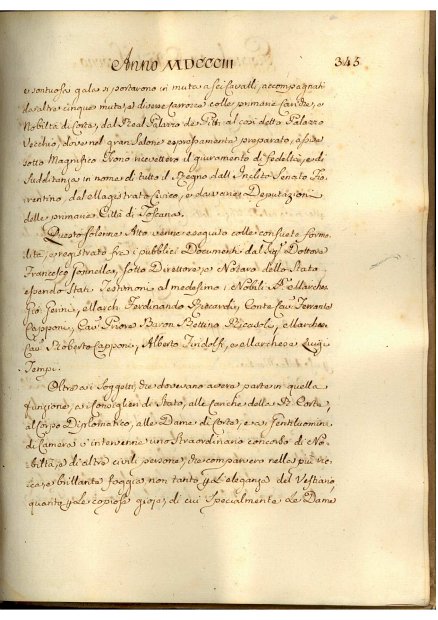 Anno MDCCCIII 345
e sontuosa gala si portarono in muta a sei Cavalli, accompagnati
da altre cinque mute, e diverse carrozze colle primarie Cariche, e
Nobiltà di Corte, dal Real Palazzo de Pitti al così detto Palazzo
Vecchio, dove nel gran Salone espressamente preparato, assise
sotto Magnifico Trono ricevettero il giuramento di fedeltà, e di
Sudditanza in nome di tutto il Regno dall' Inclito Senato Fio-
rentino, dal Magistrato Civico, e da varie Deputazioni
delle primarie Città di Toscana.
Questo solenne Atto venne eseguito colle consuete forma-
lità, e registrato fra i pubblici Documenti dal Sig. Dottore
Francesco Sonnella, sotto Direttore, e Notaro dello Stato
essendo stati Testimoni al medesimo i Nobili March.
Gio. Gerini, March. Ferdinando Riccardi, Conte Cav. Ferrante
Capponi, Cav. Priore Baron Bettino Ricasoli, Marchese
Cav. Roberto Capponi, Alberto Rindolfi, e Marchese Luigi
Tempi.
Oltre a i Soggetti, che dovevano avere parte in quella
funzione, a i Consiglieri di Stato, alle Cariche della R. Corte,
al Corpo Diplomatico, alle Dame di Corte, e a i Gentiluomini
di Camera v' intervenne uno straordinario concorso di No-
biltà, e di altre civili persone, che comparvero nella più ric-
ca, e brillante foggia non tanto per l' eleganza del Vestiario,
quanto per le copiose gioje, di cui specialmente le Dame